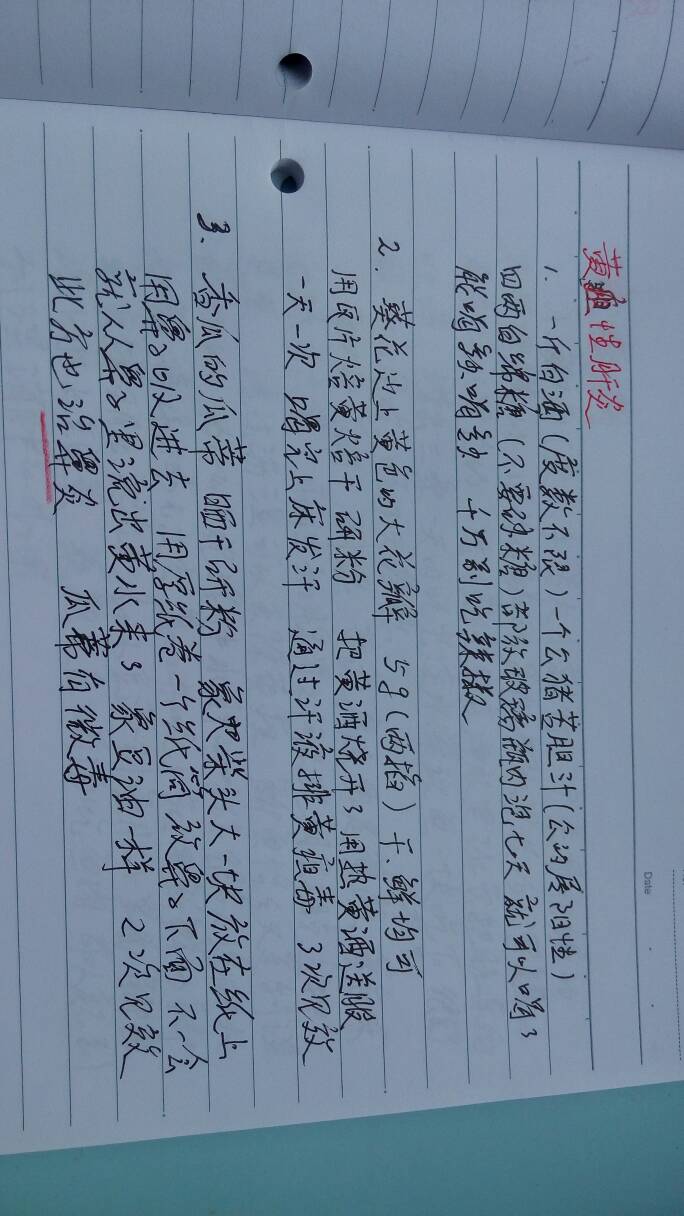 Date
黄疸性肝炎
1. 一斤白酒(度数不限)一个公猪苦胆汁(公的属阳性)
四两白绵糖(不要砂糖)都放玻璃瓶内泡七天 就可以喝了
能喝多少喝多少 千万别吃辣椒
2. 葵花边上黄色的大花瓣 5g(两指)干、鲜均可
用瓦片焙黄焙干研粉 把黄酒烧开了用热黄酒送服
一天一次 喝完上床发汗 通过汗液排黄疸毒 3次见效
3. 香瓜的瓜蒂 晒干研粉 象火柴头大一块放在纸上
用鼻子吸进去 用厚纸卷一个纸筒放鼻子下面 不一会
就从鼻子里流出黄水来了 象豆油一样 2次见效
此方也治鼻炎 瓜蒂有微毒